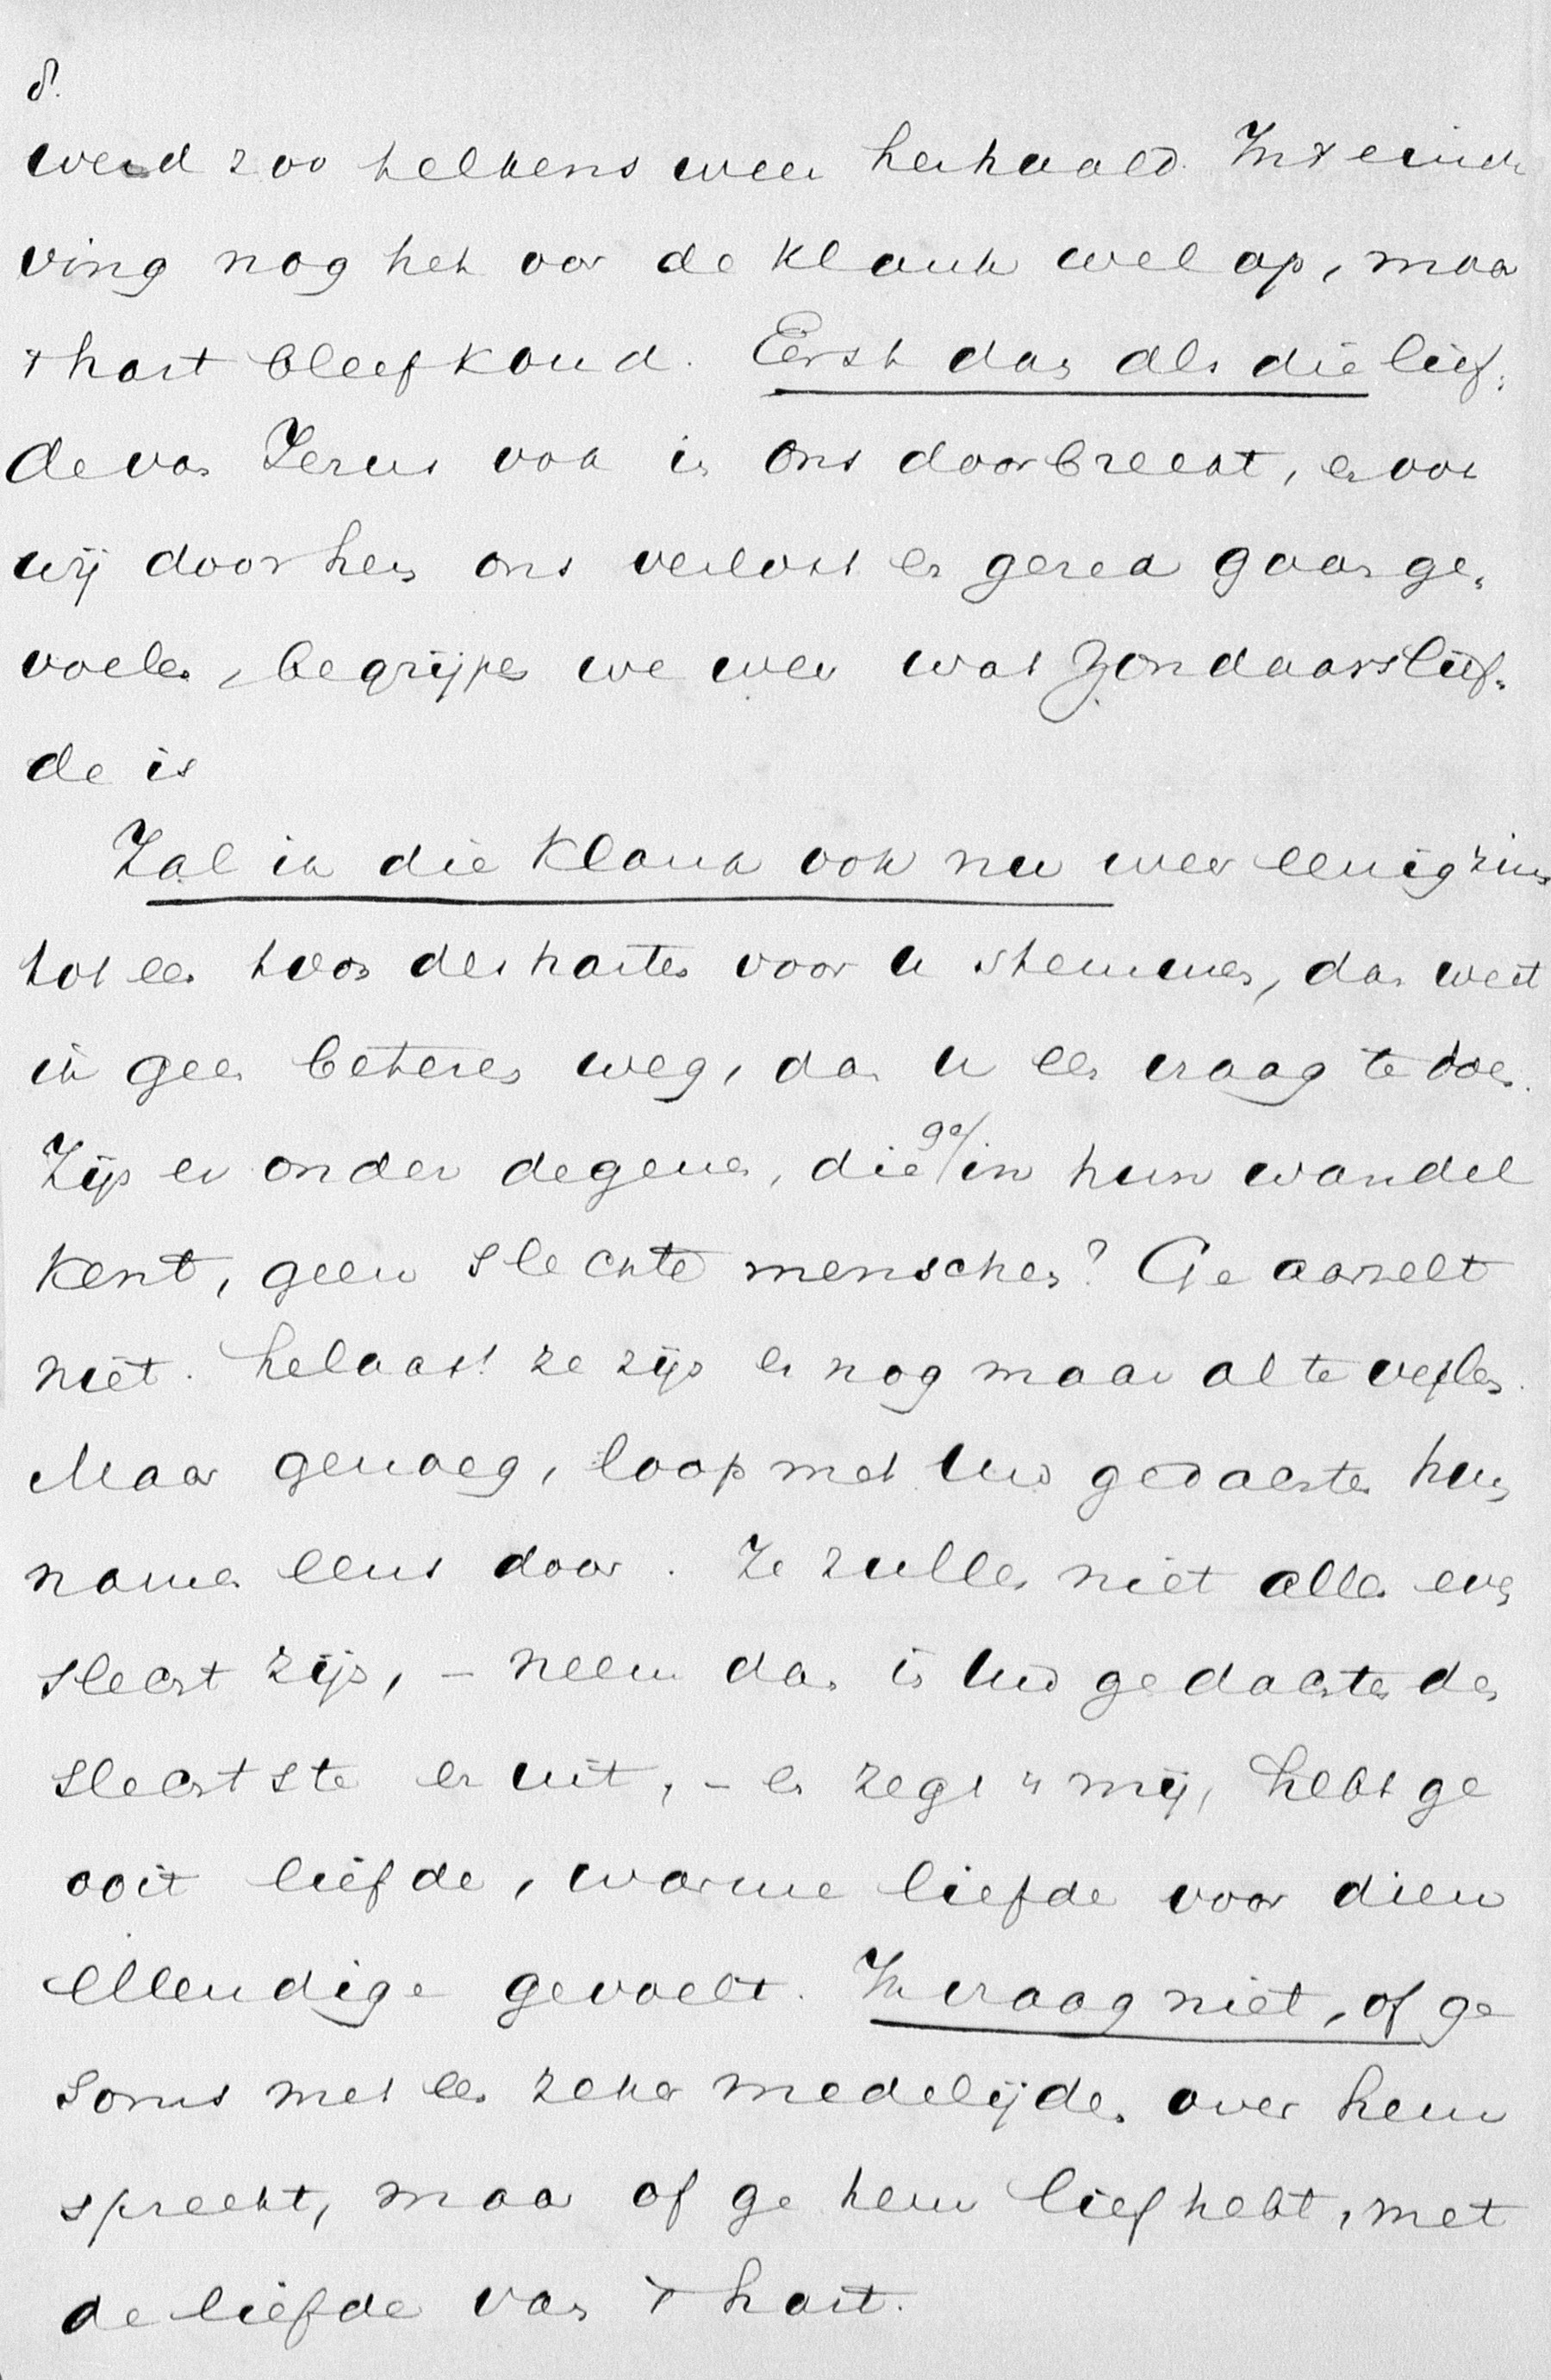 8.
werd zoo telkens weer herhaald. In 't eind
ving nog het oor de klank wel op, maar
't hart bleef koud. Eerst dan als die lief-
de van Jezus ook in ons doorbreekt, en ook
wij door hem ons verlost en gered gaan ge-
voelen, begrijpen we weer wat zondaarslief-
de is
Zal ik die klank ook nu weer eenigzins
tot een toon des harten voor u stemmen, dan weet
ik geen beteren weg, dan u een vraag te doen.
Zijn er onder degenen, die ge in hun wandel
kent, geen slechte menschen? Ge aarzelt
niet. helaas! ze zijn er nog maar al te velen.
Maar genoeg, loop met uw gedachten hun
namen eens door. Ze zullen niet allen even
slecht zijn, – neem dan in uw gedachten den
slechtste er uit, – en zegt 't mij, hebt ge
ooit liefde, warme liefde voor dien
ellendige gevoelt. Ik vraag niet, of ge
soms met een zeker medelijden over hem
spreekt, maar of ge hem lief hebt, met
de liefde van 't hart.